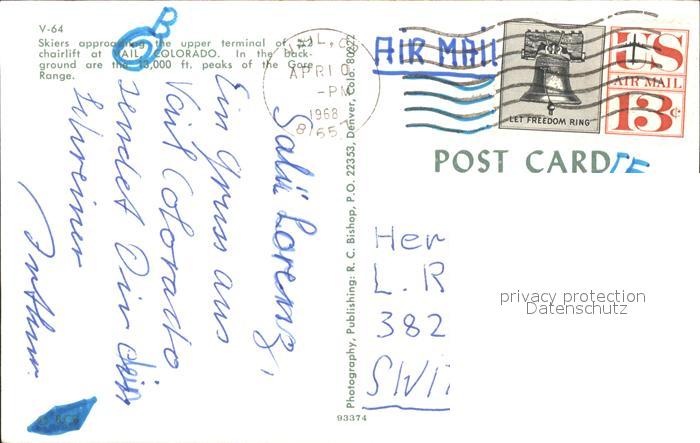 V-64
Skiers approaching the upper terminal of #2
chairlift at VAIL, COLORADO. In the back-
ground are the 13,000 ft. peaks of the Gore
Range.
Salü Lorenz,
Ein Gruss aus
Vail Colorado
sendet Dir dein
Schreiner
Photography, Publishing: R. C. Bishop, P.O. 22353, Denver, Colo. 80222
93374
VAIL, CO
APR 10
-PM
1968
81657
AIR MAIL
LET FREEDOM RING
US
AIR MAIL
13c
POST CARD
Her
L. R
382
SWIT
privacy protection
Datenschutz